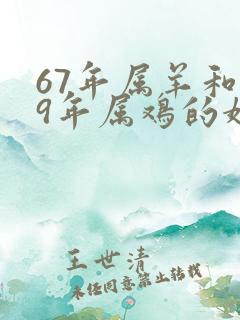 67年属羊和
9年属鸡的
王世清
未经同意禁止转载